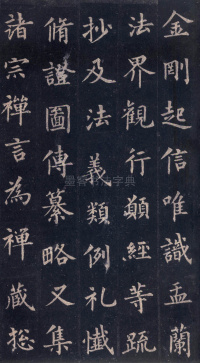 金剛起信唯識盂蘭
法界觀行願經等疏
抄及法義類例礼懺
脩證圖傳纂略又集
諸宗禪言為禪藏揔